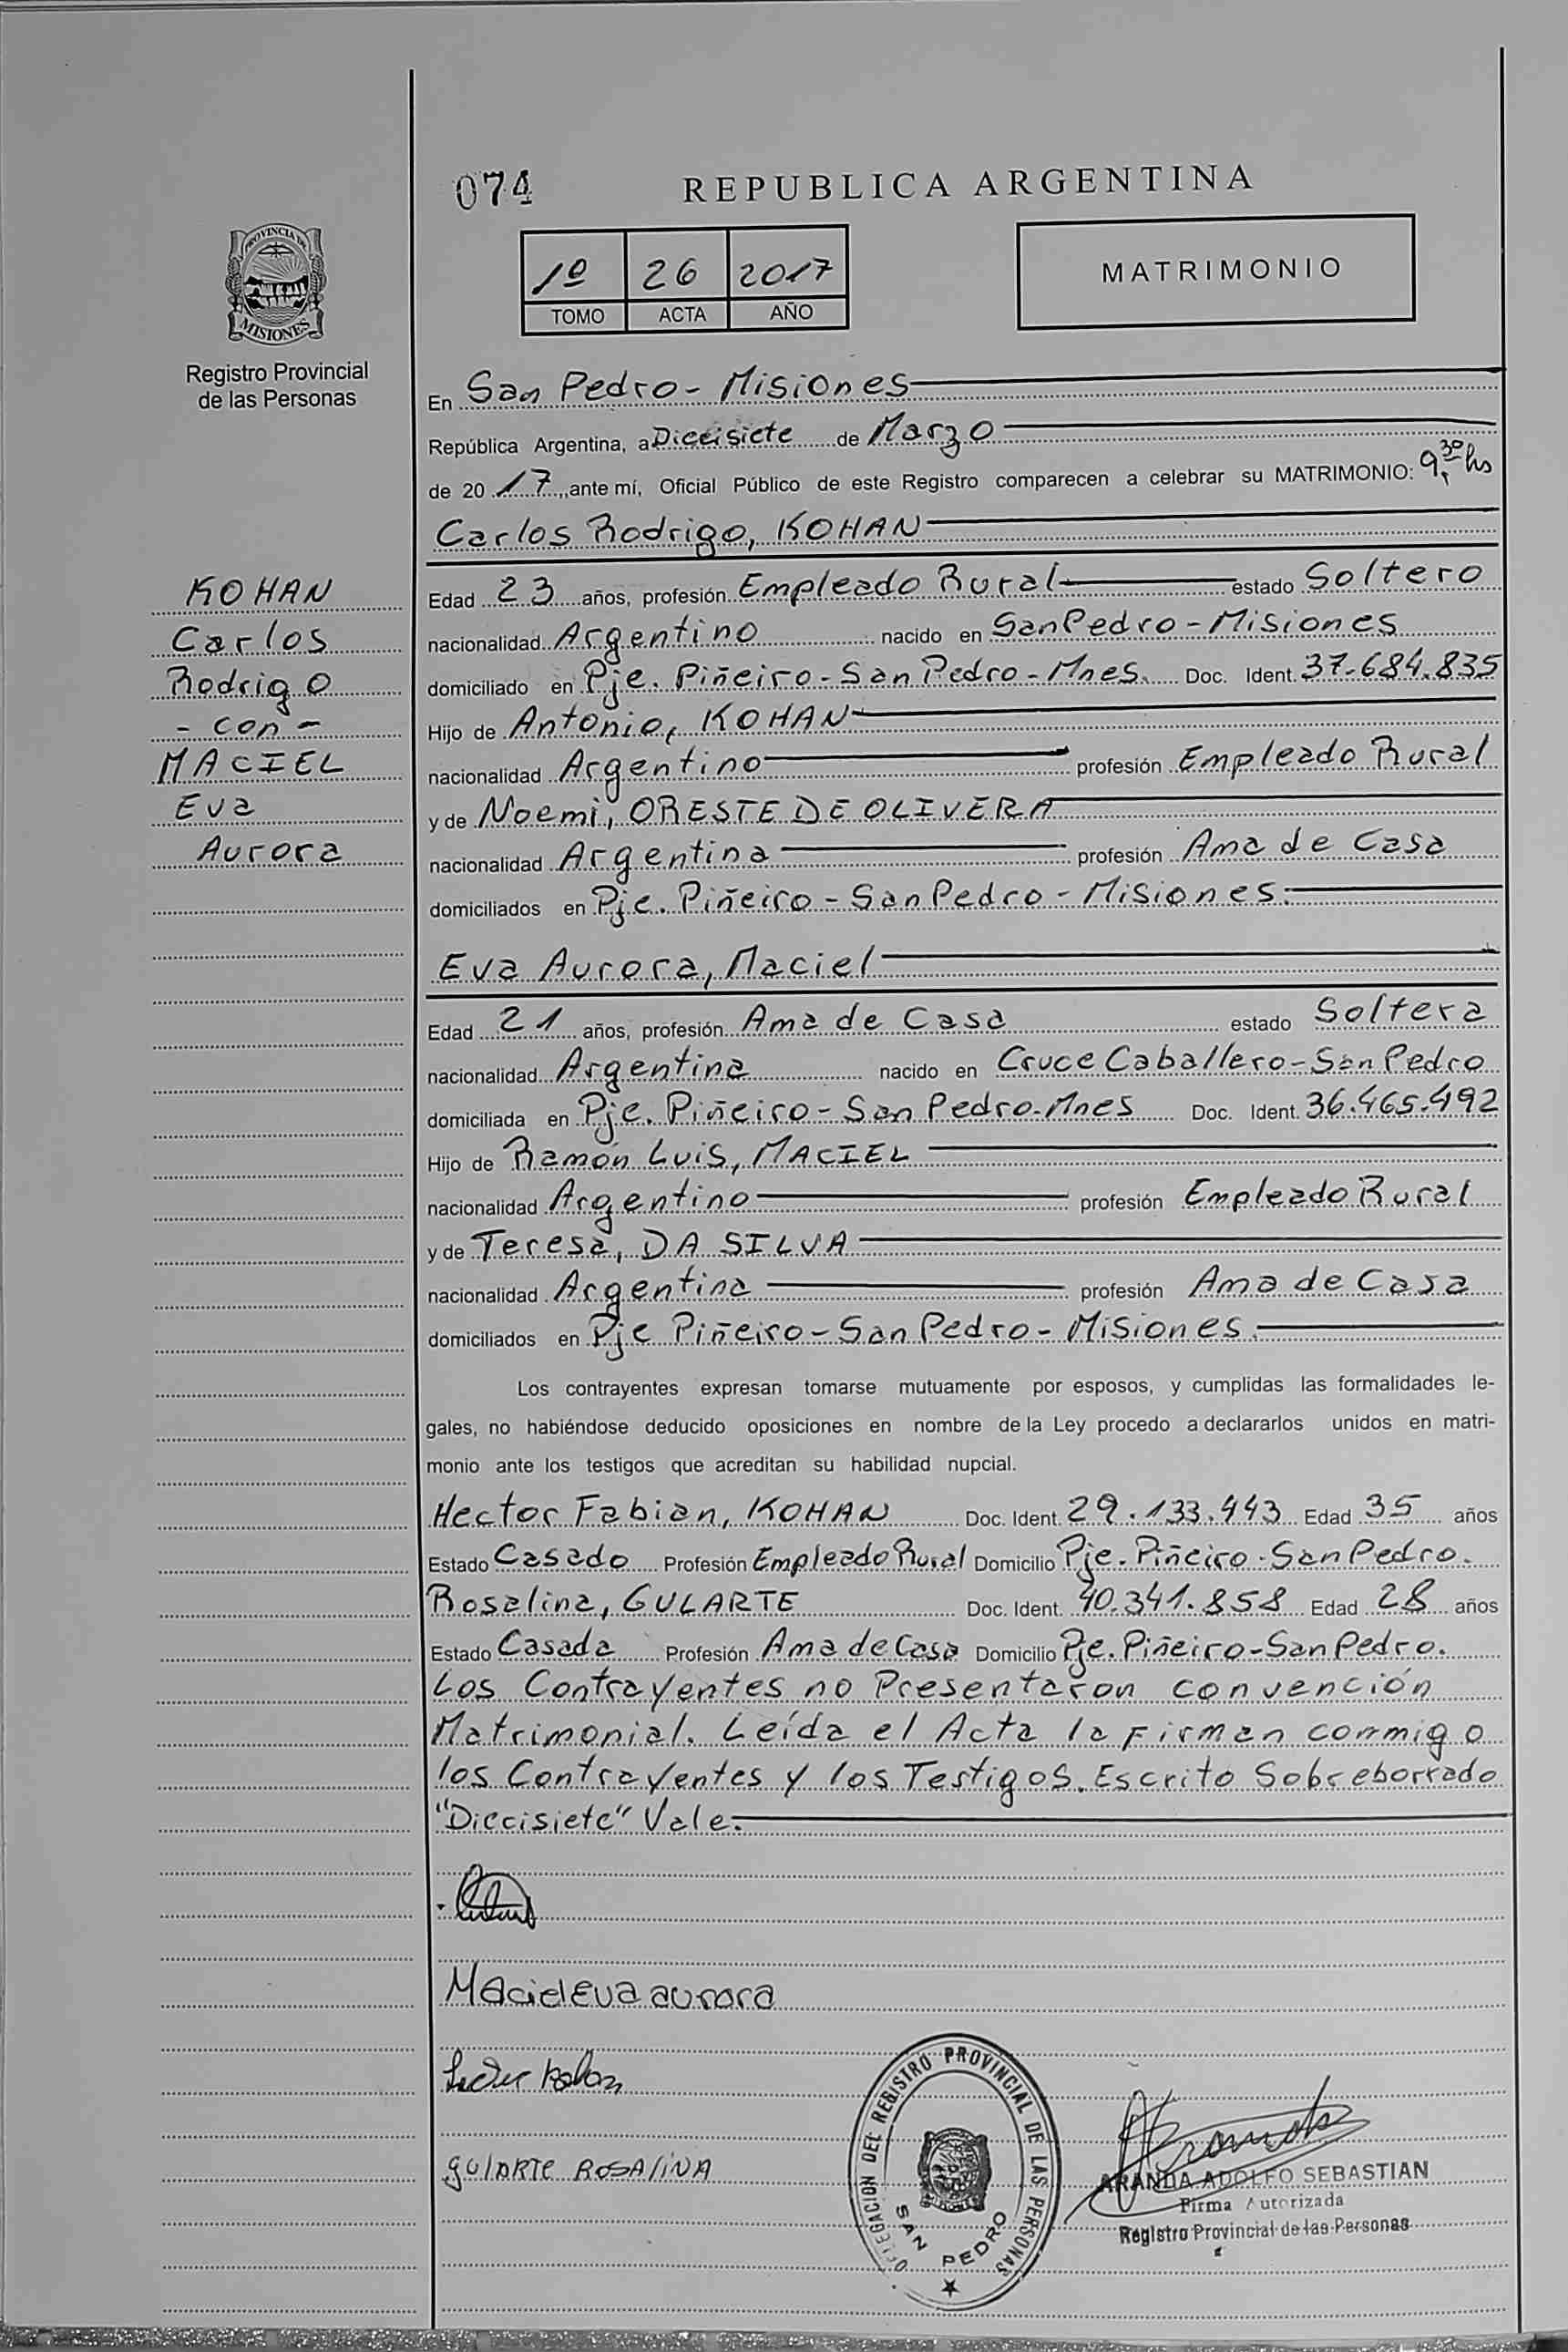 074
REPUBLICA ARGENTINA
PROVINCIA DE
MISIONES
Registro Provincial
de las Personas
1º 26 2017
TOMO ACTA AÑO
MATRIMONIO
En San Pedro - Misiones
República Argentina, a Diecisiete de Marzo
de 20 17, ante mí, Oficial Público de este Registro comparecen a celebrar su MATRIMONIO: 9,30 hs
Carlos Rodrigo, KOHAN
KOHAN
Carlos
Rodrigo
- con -
MACIEL
Eva
Aurora
Edad 23 años, profesión Empleado Rural estado Soltero
nacionalidad Argentino nacido en San Pedro - Misiones
domiciliado en Pje. Piñeiro - San Pedro - Mnes. Doc. Ident. 37.684.835
Hijo de Antonio, KOHAN
nacionalidad Argentino profesión Empleado Rural
y de Noemi, ORESTE DE OLIVERA
nacionalidad Argentina profesión Ama de Casa
domiciliados en Pje. Piñeiro - San Pedro - Misiones.
Eva Aurora, Maciel
Edad 21 años, profesión Ama de Casa estado Soltera
nacionalidad Argentina nacido en Cruce Caballero - San Pedro
domiciliada en Pje. Piñeiro - San Pedro - Mnes Doc. Ident. 36.465.492
Hijo de Ramón Luis, MACIEL
nacionalidad Argentino profesión Empleado Rural
y de Teresa, DA SILVA
nacionalidad Argentina profesión Ama de Casa
domiciliados en Pje Piñeiro - San Pedro - Misiones.
Los contrayentes expresan tomarse mutuamente por esposos, y cumplidas las formalidades le-
gales, no habiéndose deducido oposiciones en nombre de la Ley procedo a declararlos unidos en matri-
monio ante los testigos que acreditan su habilidad nupcial.
Hector Fabian, KOHAN Doc. Ident. 29.133.443 Edad 35 años
Estado Casado Profesión Empleado Rural Domicilio Pje. Piñeiro - San Pedro.
Rosalina, GULARTE Doc. Ident. 40.341.858 Edad 28 años
Estado Casada Profesión Ama de Casa Domicilio Pje. Piñeiro - San Pedro.
Los Contrayentes no Presentaron convención
Matrimonial. Leída el Acta la Firman conmigo
los Contrayentes y los Testigos. Escrito Sobreborrado
"Diecisiete" Vale.
Maciel Eva aurora
gulARTE ROSAliNA
DELEGACION DEL REGISTRO PROVINCIAL DE LAS PERSONAS
SAN PEDRO
ARANDA ADOLFO SEBASTIAN
Firma Autorizada
Registro Provincial de las Personas